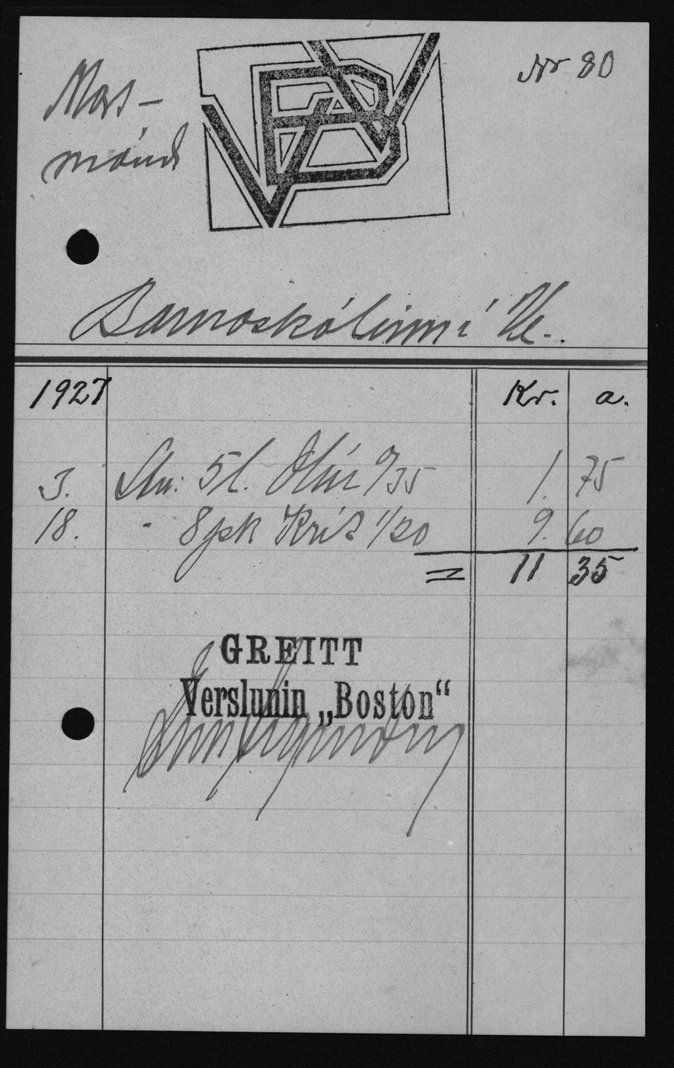 Nr 80
Mars-
mánuð
VB
Barnaskólinn í Ve.
1927 Kr. a.
3. 5 l. Olía 0/35 1.75
18. " 8 pk Krít 1/20 9.60
= 11 35
GREITT
Verslunin „Boston“